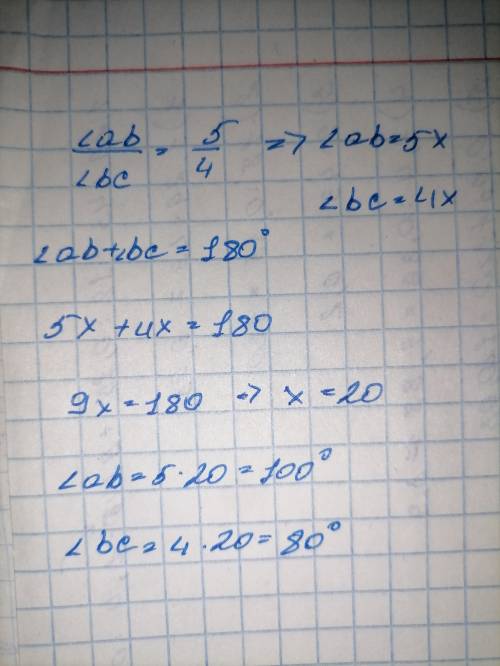 ∠ab/∠bc = 5/4 => ∠ab=5x
∠bc=4x
∠ab+∠bc=180°
5x+4x=180
9x=180 => x=20
∠ab=5·20=100°
∠bc=4·20=80°